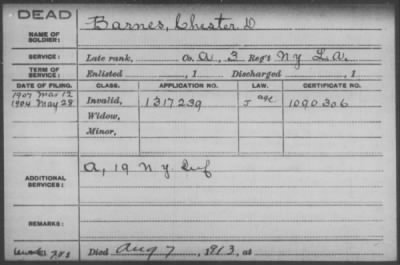 DEAD
NAME OF SOLDIER: Barnes, Chester D
SERVICE: Late rank, Co. A, 3 Reg't N Y L. A.
TERM OF SERVICE: Enlisted , 1 Discharged , 1
DATE OF FILING. CLASS. APPLICATION NO. LAW. CERTIFICATE NO.
1907 Mar 12
1904 May 28 Invalid, 1317239 J age 1090306
Widow,
Minor,
ADDITIONAL SERVICES: A, 19 N Y Inf
REMARKS:
Died Aug 7, 1913, at